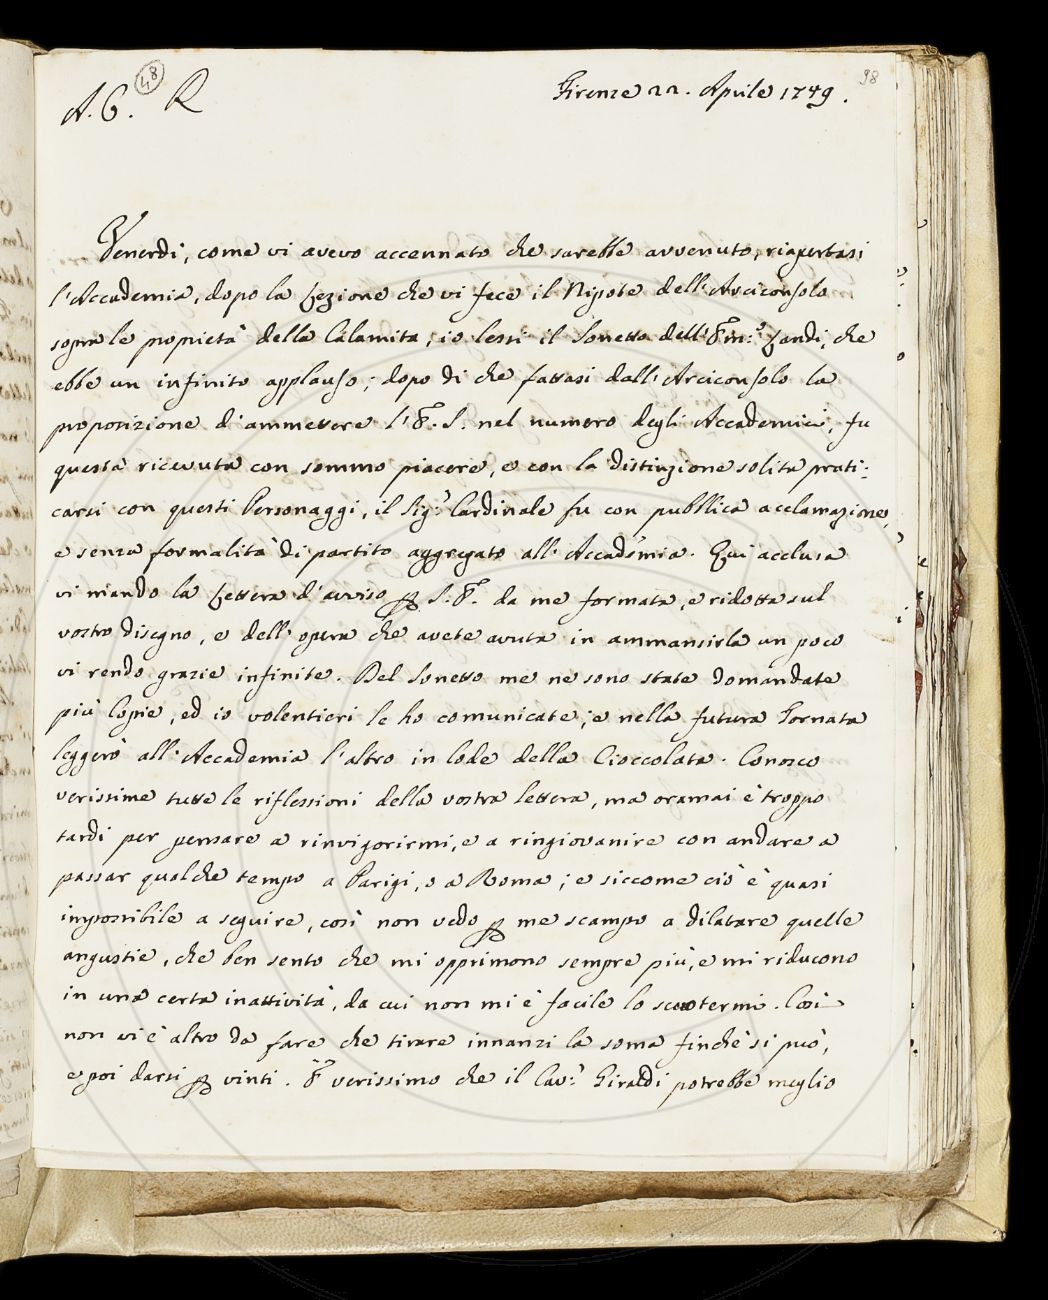 48
98
A. C. R
Firenze 22. Aprile 1749.
Venerdì, come vi avevo accennato che sarebbe avvenuto, riapertasi
l'Accademia, dopo la Lezione che vi fece il Nipote dell'Arciconsolo
sopra le propietà della Calamita, io lessi il Sonetto dell'Em:o Landi, che
ebbe un infinito applauso; dopo di che fattasi dall'Arciconsolo la
proposizione d'ammettere l'E. S. nel numero degli Accademici, fu
questa ricevuta con sommo piacere, e con la distinzione solita prati:
carsi con questi Personaggi, il Sig:r Cardinale fu con pubblica acclamazione,
e senza formalità di partito aggregato all'Accademia. Qui acclusa
vi mando la Lettera d'avviso p S. E. da me formata, e ridotta sul
vostro disegno, e dell'opera che avete avuta in ammansirla un poco
vi rendo grazie infinite. Del Sonetto me ne sono state domandate
più Copie, ed io volentieri le ho comunicate; e nella futura Tornata
leggerò all'Accademia l'altro in lode della Cioccolata. Conosco
verissime tutte le riflessioni della vostra lettera, ma oramai è troppo
tardi per pensare a rinvigorirmi, e a ringiovanire con andare a
passar qualche tempo a Parigi, o a Roma; e siccome ciò è quasi
impossibile a seguire, così non vedo p me scampo a dilatare quelle
angustie, che ben sento che mi opprimono sempre più, e mi riducono
in una certa inattività, da cui non mi è facile lo scuotermi. Così
non vi è altro da fare che tirare innanzi la soma finchè si può,
e poi darsi p vinti. È verissimo che il Cav:r Giraldi potrebbe meglio